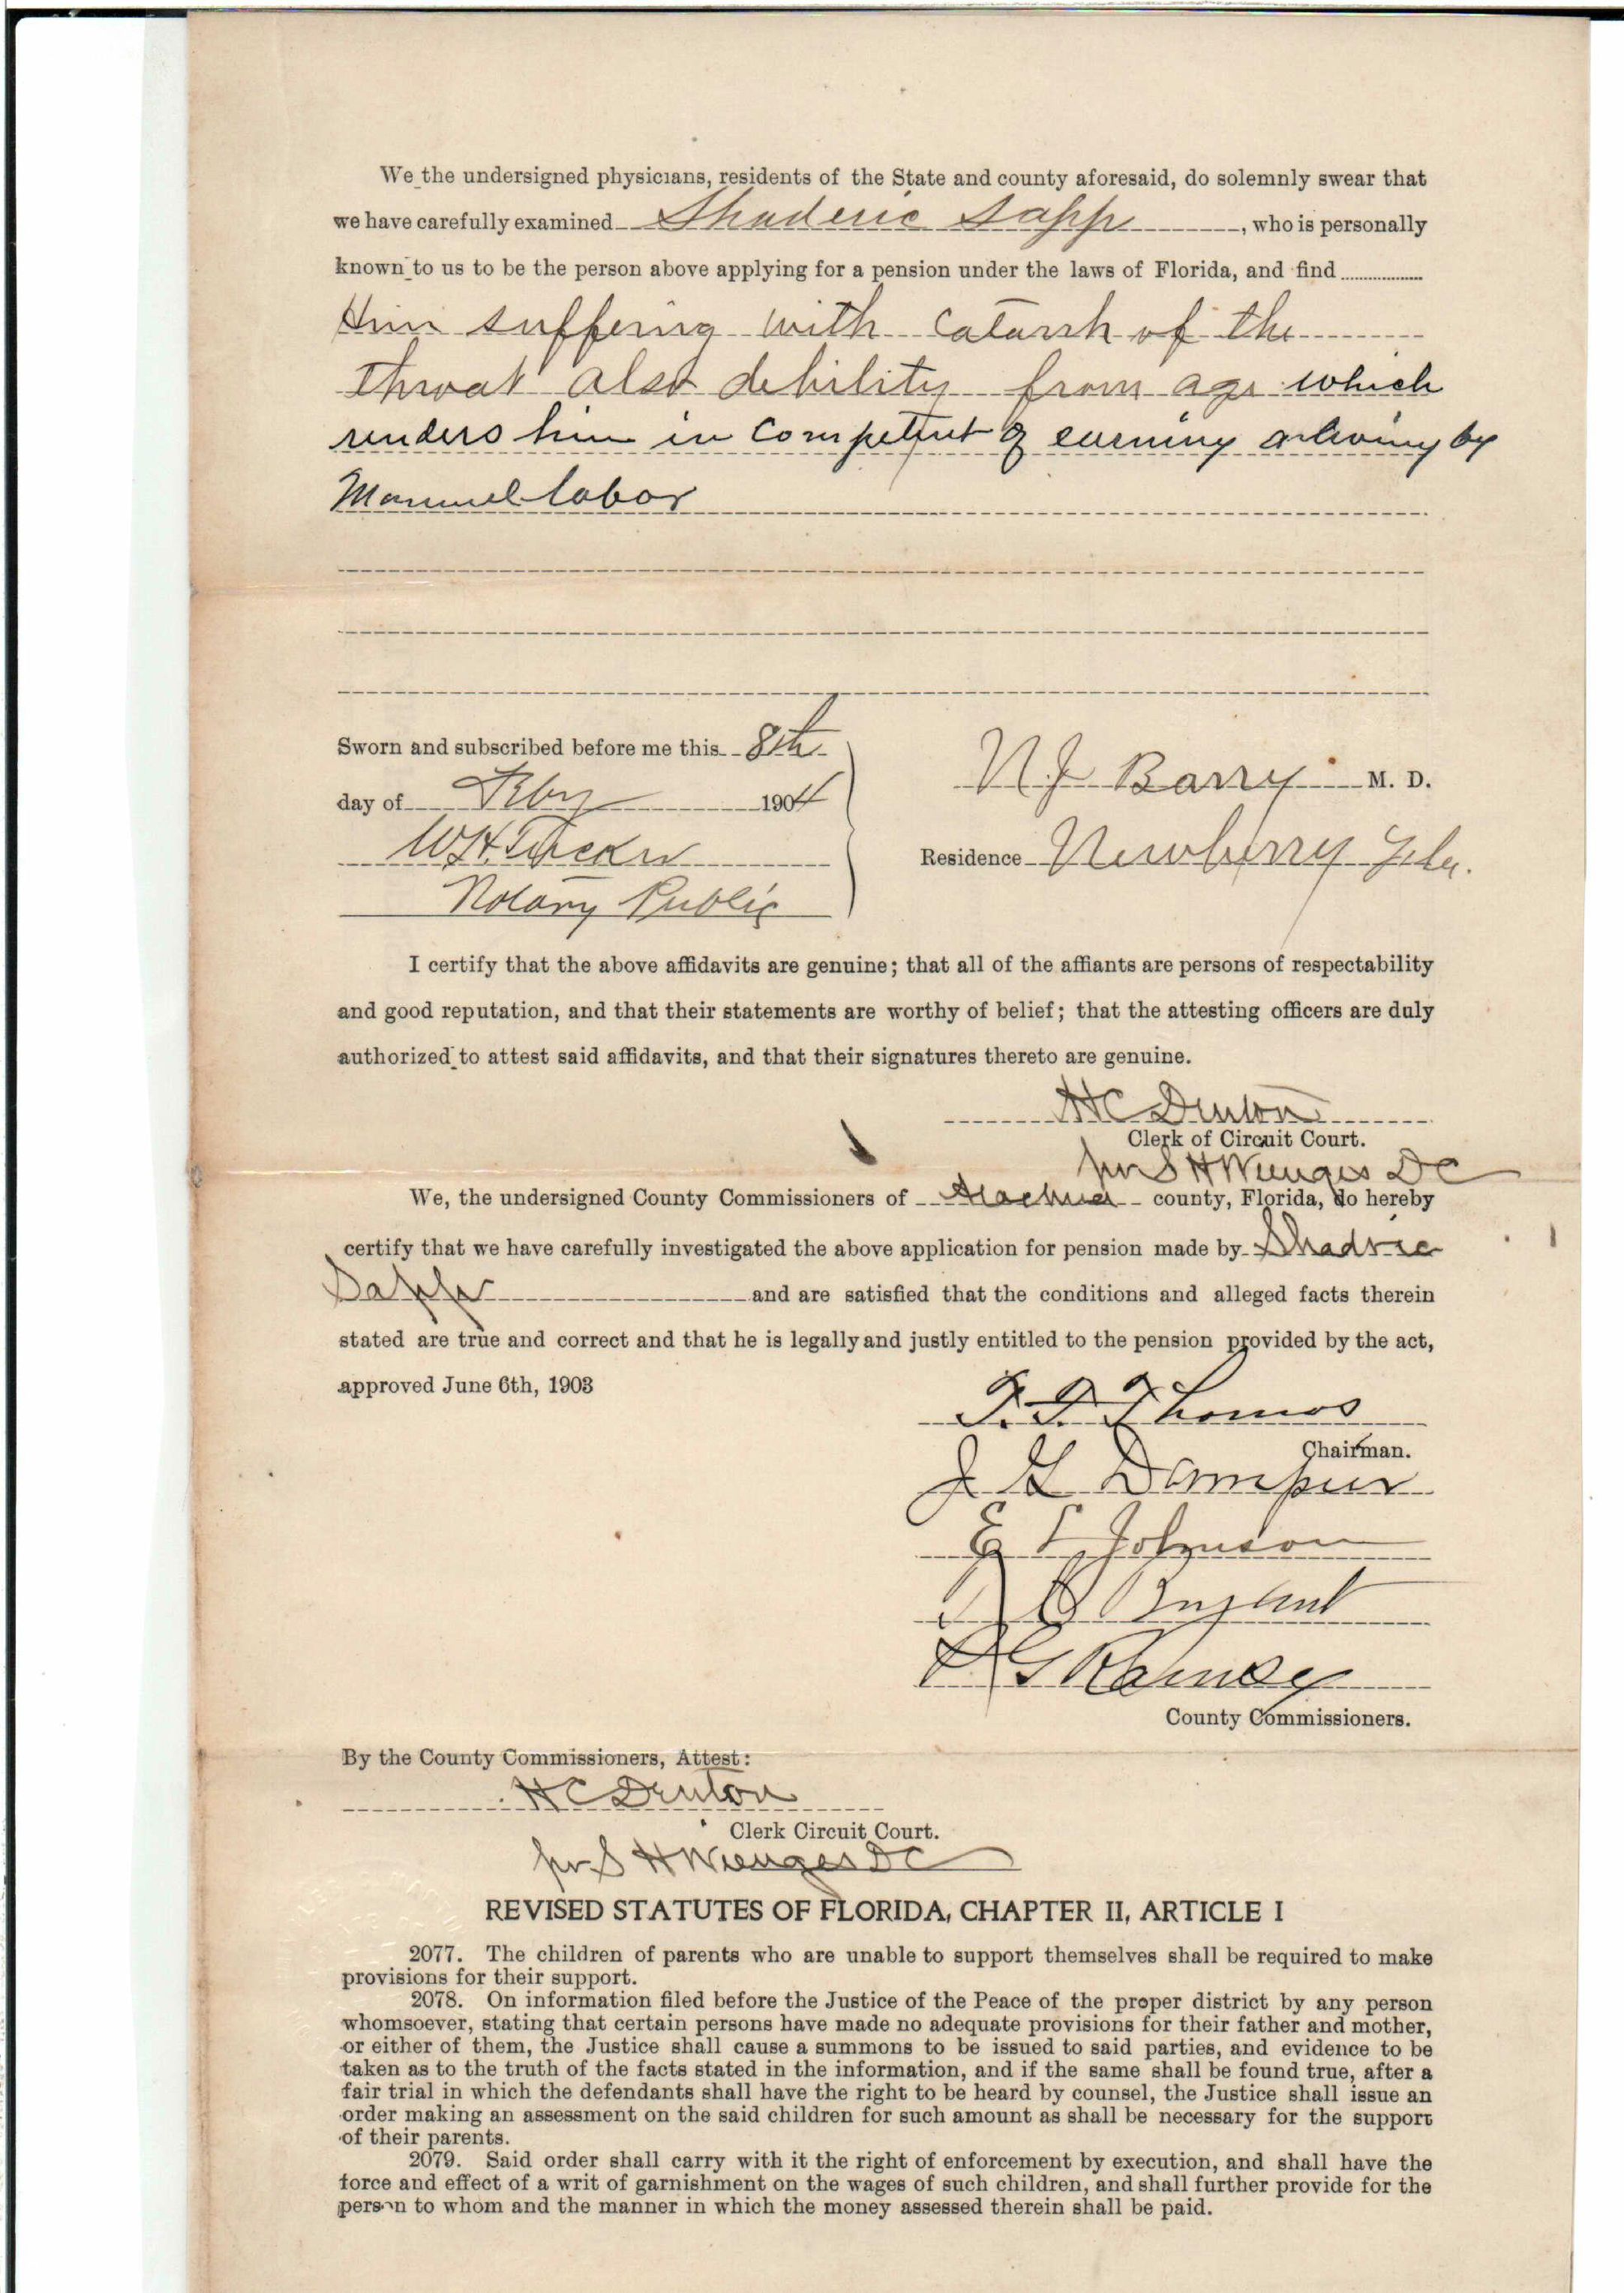 We the undersigned physicians, residents of the State and county aforesaid, do solemnly swear that
we have carefully examined Shaderic Sapp, who is personally
known to us to be the person above applying for a pension under the laws of Florida, and find
Him suffering with Catarrh of the
Throat also debility from age which
renders him in Competent of earning a living by
Manuel labor
Sworn and subscribed before me this 8th
day of Feby 1904
W H Tucker
Notary Public
N J Barry M. D.
Residence Newberry Fla.
I certify that the above affidavits are genuine; that all of the affiants are persons of respectability
and good reputation, and that their statements are worthy of belief; that the attesting officers are duly
authorized to attest said affidavits, and that their signatures thereto are genuine.
H C Denton
Clerk of Circuit Court.
per S H Wienges D C
We, the undersigned County Commissioners of Alachua county, Florida, do hereby
certify that we have carefully investigated the above application for pension made by Shadric
Sapp and are satisfied that the conditions and alleged facts therein
stated are true and correct and that he is legally and justly entitled to the pension provided by the act,
approved June 6th, 1903
Thomas
Chairman.
J G Dampier
E L Johnson
Bryant
G Ramsey
County Commissioners.
By the County Commissioners, Attest:
H C Denton
Clerk Circuit Court.
per S H Wienges D C
REVISED STATUTES OF FLORIDA, CHAPTER II, ARTICLE I
2077. The children of parents who are unable to support themselves shall be required to make
provisions for their support.
2078. On information filed before the Justice of the Peace of the proper district by any person
whomsoever, stating that certain persons have made no adequate provisions for their father and mother,
or either of them, the Justice shall cause a summons to be issued to said parties, and evidence to be
taken as to the truth of the facts stated in the information, and if the same shall be found true, after a
fair trial in which the defendants shall have the right to be heard by counsel, the Justice shall issue an
order making an assessment on the said children for such amount as shall be necessary for the support
of their parents.
2079. Said order shall carry with it the right of enforcement by execution, and shall have the
force and effect of a writ of garnishment on the wages of such children, and shall further provide for the
person to whom and the manner in which the money assessed therein shall be paid.